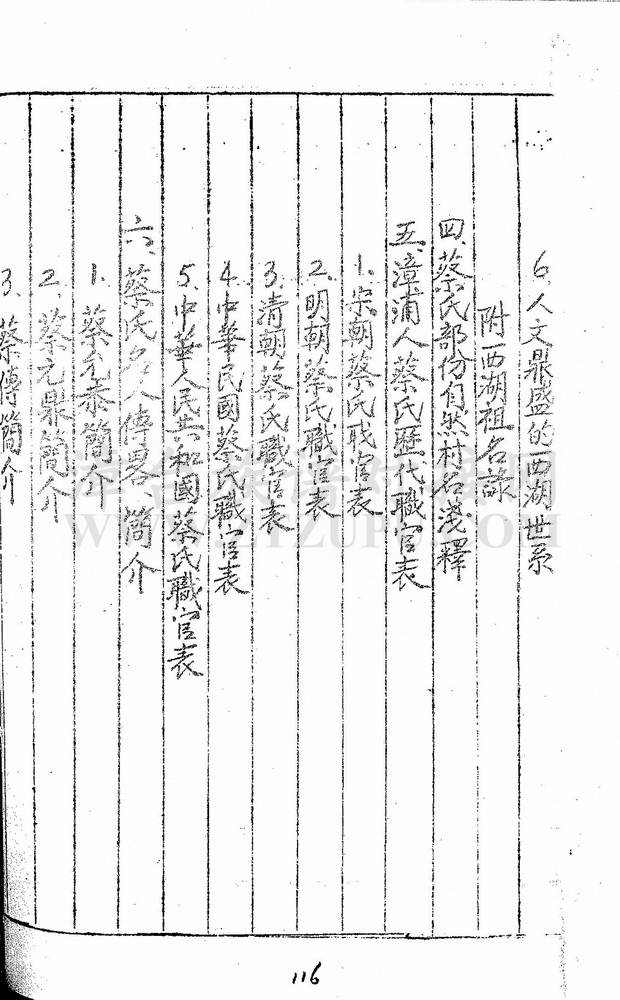 6、人文鼎盛的西湖世系
附西湖祖名諒
四、蔡氏部份自然村名淺釋
五、漳浦人蔡氏歷代職官表
1、宋朝蔡氏职官表
2、明朝蔡氏職官表
3、清朝蔡氏職官表
4、中華民國蔡氏職官表
5、中華人民共和國蔡氏職官表
六、蔡氏名人傳畧、簡介
1、蔡允恭簡介
2、蔡元鼎簡介
3、蔡傳簡介
116